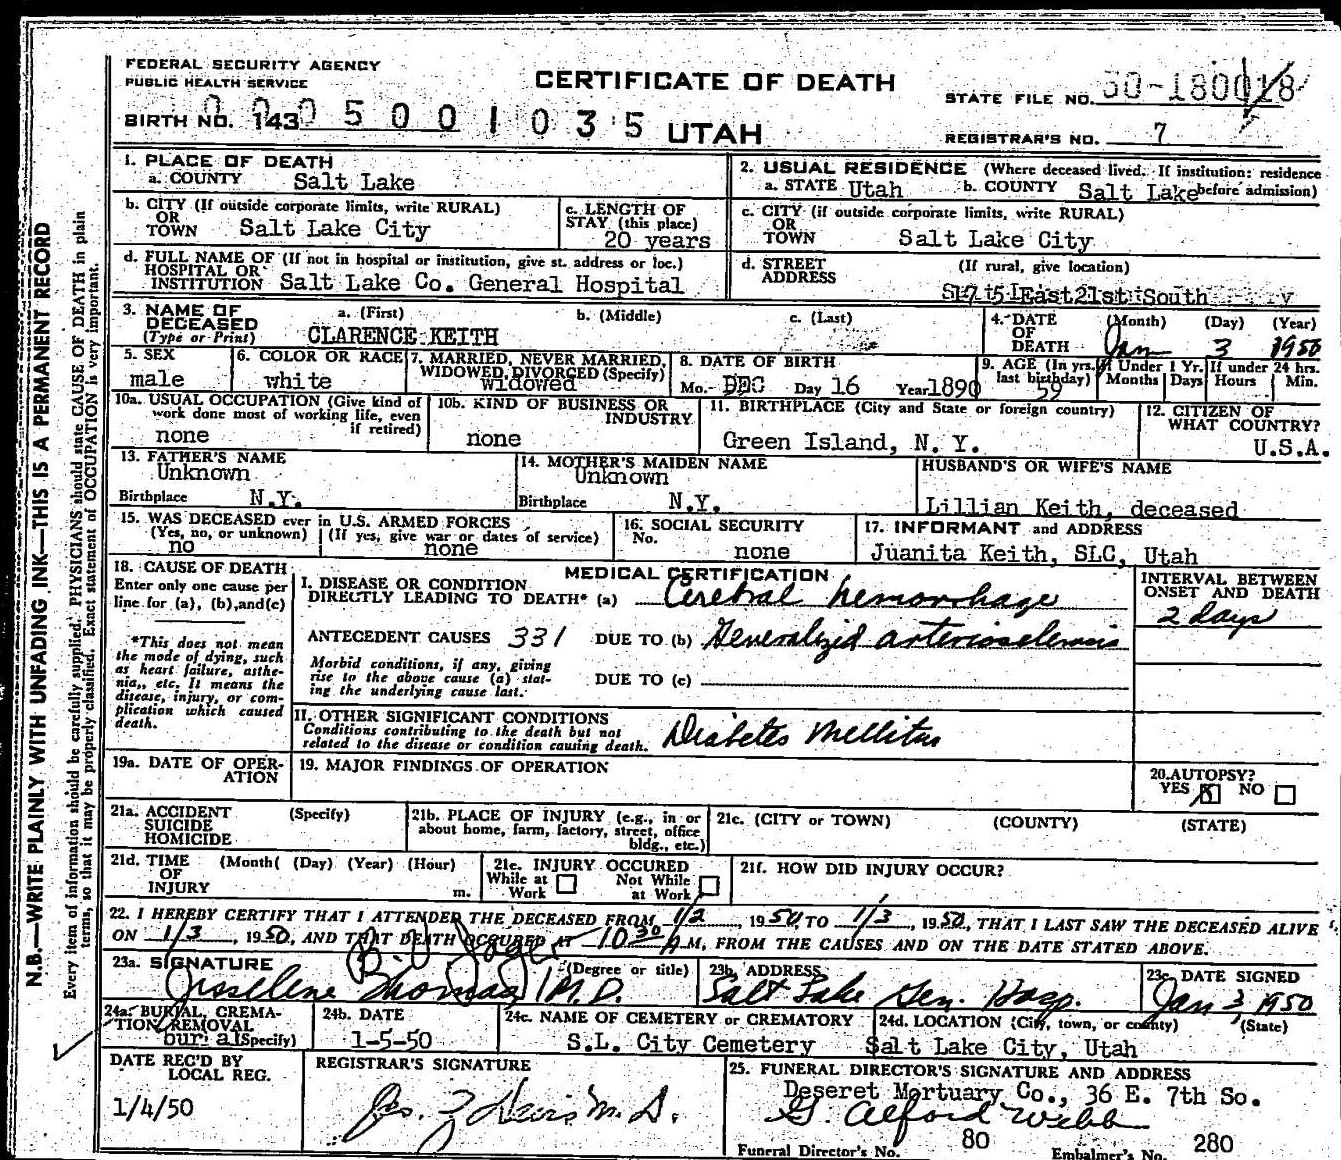 FEDERAL SECURITY AGENCY
PUBLIC HEALTH SERVICE
CERTIFICATE OF DEATH
STATE FILE NO. 50-180018
BIRTH NO. 143
0005001035
UTAH
REGISTRAR'S NO. 7
1. PLACE OF DEATH
a. COUNTY Salt Lake
2. USUAL RESIDENCE (Where deceased lived. If institution: residence before admission)
a. STATE Utah b. COUNTY Salt Lake
b. CITY (If outside corporate limits, write RURAL)
OR
TOWN Salt Lake City
c. LENGTH OF
STAY (this place)
20 years
c. CITY (if outside corporate limits, write RURAL)
OR
TOWN Salt Lake City
d. FULL NAME OF (If not in hospital or institution, give st. address or loc.)
HOSPITAL OR
INSTITUTION Salt Lake Co. General Hospital
d. STREET
ADDRESS
(If rural, give location)
East 21st South
3. NAME OF
DECEASED
(Type or Print)
a. (First) b. (Middle) c. (Last)
CLARENCE KEITH
4. DATE
OF
DEATH
(Month) (Day) (Year)
Jan 3 1950
5. SEX
male
6. COLOR OR RACE
white
7. MARRIED, NEVER MARRIED,
WIDOWED, DIVORCED (Specify)
widowed
8. DATE OF BIRTH
Mo. DEC Day 16 Year 1890
9. AGE (In yrs.
last birthday)
59
If Under 1 Yr.
Months Days
If under 24 hrs.
Hours Min.
10a. USUAL OCCUPATION (Give kind of
work done most of working life, even
if retired)
none
10b. KIND OF BUSINESS OR
INDUSTRY
none
11. BIRTHPLACE (City and State or foreign country)
Green Island, N. Y.
12. CITIZEN OF
WHAT COUNTRY?
U.S.A.
13. FATHER'S NAME
Unknown
Birthplace N.Y.
14. MOTHER'S MAIDEN NAME
Unknown
Birthplace N.Y.
HUSBAND'S OR WIFE'S NAME
Lillian Keith, deceased
15. WAS DECEASED ever in U.S. ARMED FORCES
(Yes, no, or unknown) (If yes, give war or dates of service)
no none
16. SOCIAL SECURITY
No. none
17. INFORMANT and ADDRESS
Juanita Keith, SLC, Utah
18. CAUSE OF DEATH
Enter only one cause per
line for (a), (b), and (c)
*This does not mean
the mode of dying, such
as heart failure, asthe-
nia, etc. It means the
disease, injury, or com-
plication which caused
death.
MEDICAL CERTIFICATION
I. DISEASE OR CONDITION
DIRECTLY LEADING TO DEATH* (a) Cerebral hemorrhage
INTERVAL BETWEEN
ONSET AND DEATH
2 days
ANTECEDENT CAUSES 331 DUE TO (b) Generalized arteriosclerosis
Morbid conditions, if any, giving
rise to the above cause (a) stat-
ing the underlying cause last.
DUE TO (c)
II. OTHER SIGNIFICANT CONDITIONS
Conditions contributing to the death but not
related to the disease or condition causing death.
Diabetes Mellitus
19a. DATE OF OPER-
ATION
19. MAJOR FINDINGS OF OPERATION
20. AUTOPSY?
YES X NO
21a. ACCIDENT
SUICIDE
HOMICIDE
(Specify)
21b. PLACE OF INJURY (e.g., in or
about home, farm, factory, street, office
bldg., etc.)
21c. (CITY or TOWN) (COUNTY) (STATE)
21d. TIME
OF
INJURY
(Month( (Day) (Year) (Hour)
m.
21e. INJURY OCCURED
While at
Work
Not While
at Work
21f. HOW DID INJURY OCCUR?
22. I HEREBY CERTIFY THAT I ATTENDED THE DECEASED FROM 1/2, 1950, TO 1/3, 1950, THAT I LAST SAW THE DECEASED ALIVE
ON 1/3, 1950, AND THAT DEATH OCCURED AT 10 30 A M, FROM THE CAUSES AND ON THE DATE STATED ABOVE.
23a. SIGNATURE (Degree or title)
Thomas M.D.
23b. ADDRESS
Salt Lake Gen. Hosp.
23c. DATE SIGNED
Jan 3, 1950
24a. BURIAL, CREMA-
TION, REMOVAL
burial (Specify)
24b. DATE
1-5-50
24c. NAME OF CEMETERY or CREMATORY
S.L. City Cemetery
24d. LOCATION (City, town, or county) (State)
Salt Lake City, Utah
DATE REC'D BY
LOCAL REG.
1/4/50
REGISTRAR'S SIGNATURE
M.D.
25. FUNERAL DIRECTOR'S SIGNATURE AND ADDRESS
Deseret Mortuary Co., 36 E. 7th So.
G. Alford Webb
Funeral Director's No. 80 Embalmer's No. 280
N.B.—WRITE PLAINLY WITH UNFADING INK—THIS IS A PERMANENT RECORD
Every item of information should be carefully supplied. PHYSICIANS should state CAUSE OF DEATH in plain
terms, so that it may be properly classified. Exact statement of OCCUPATION is very important.